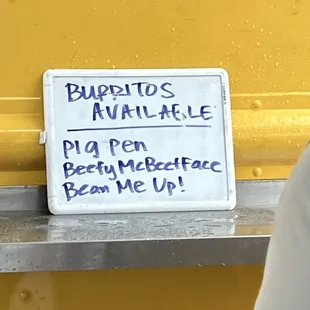 BURRITOS
AVAILABLE
Pig Pen
Beefy McBeefFace
Bean Me Up!